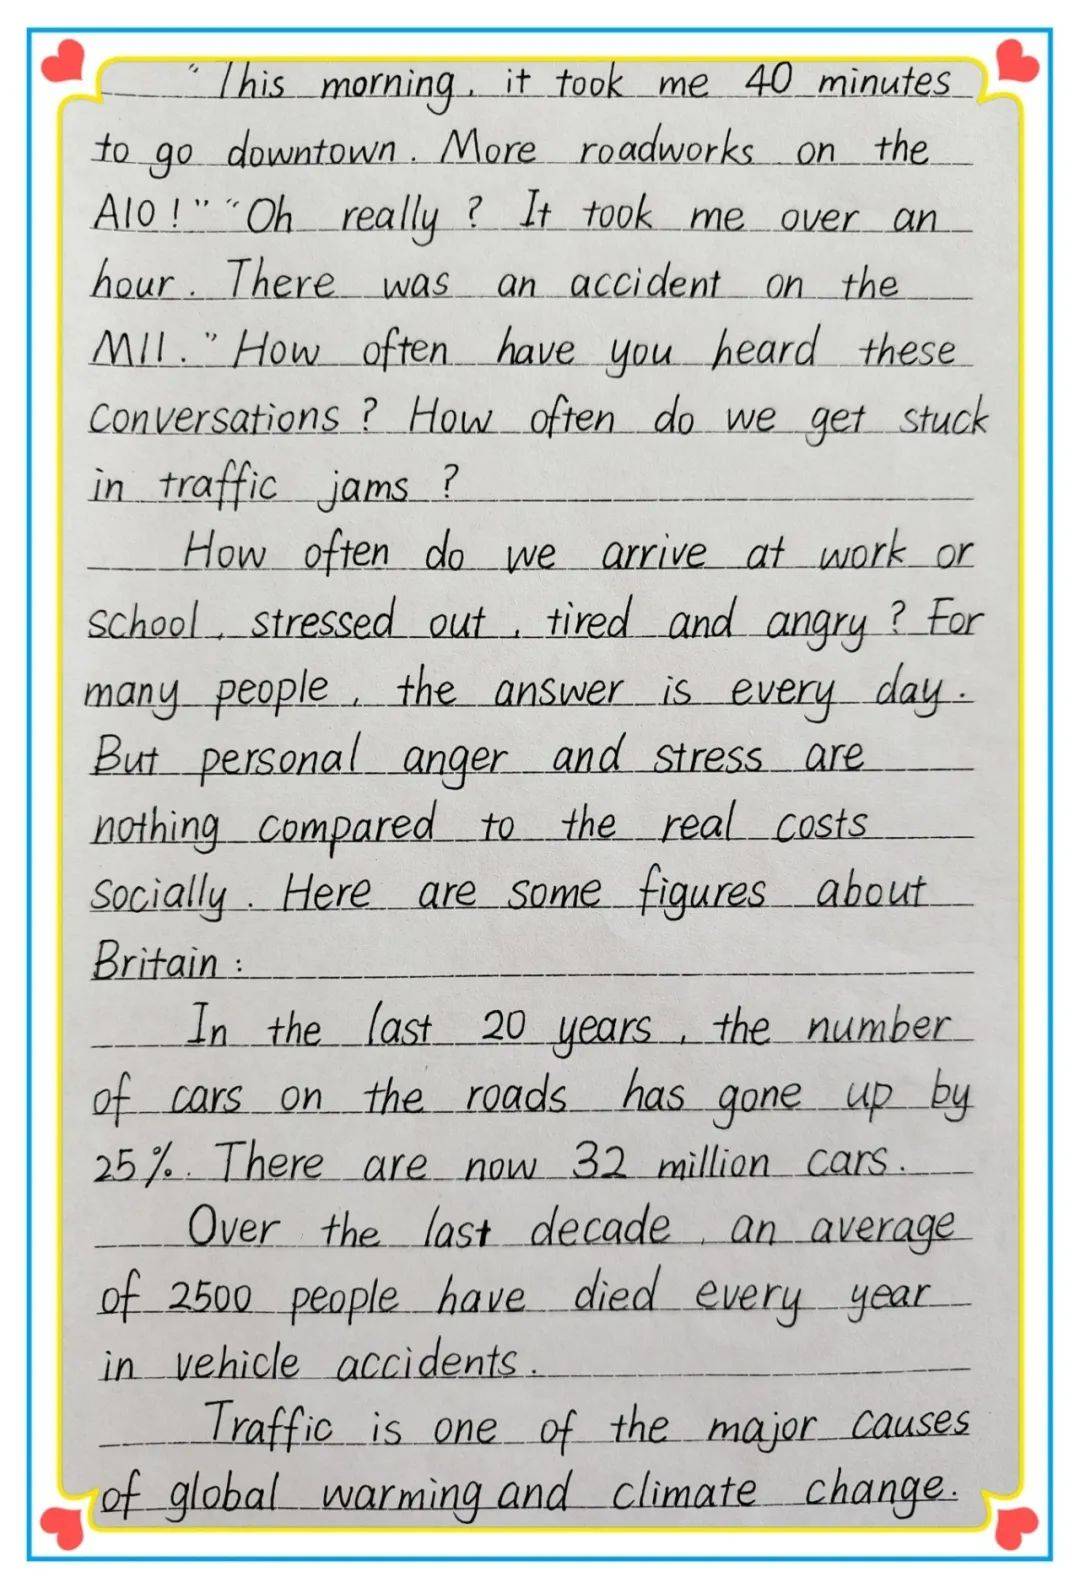 "This morning, it took me 40 minutes
to go downtown. More roadworks on the
A10!" "Oh really? It took me over an
hour. There was an accident on the
M11." How often have you heard these
conversations? How often do we get stuck
in traffic jams?
How often do we arrive at work or
school, stressed out, tired and angry? For
many people, the answer is every day.
But personal anger and stress are
nothing compared to the real costs
socially. Here are some figures about
Britain:
In the last 20 years, the number
of cars on the roads has gone up by
25%. There are now 32 million cars.
Over the last decade, an average
of 2500 people have died every year
in vehicle accidents.
Traffic is one of the major causes
of global warming and climate change.